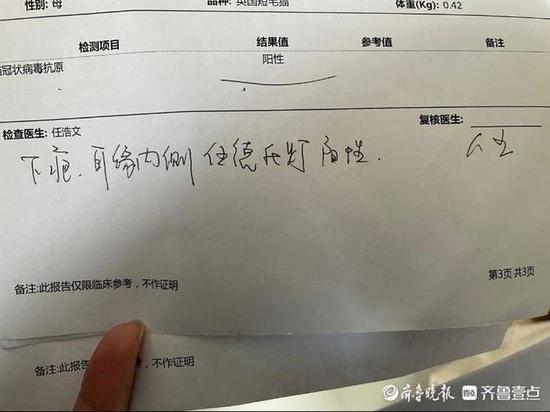 性别: 母 品种: 英国短毛猫 体重(Kg): 0.42
检测项目 结果值 参考值 备注
冠状病毒抗原 阳性
检查医生: 任浩文 复核医生:
下 耳缘内侧 伍德氏灯 阳性.
备注:此报告仅限临床参考，不作证明
第3页 共3页
备注:此报 参考，不作证明
齐鲁晚报 齐鲁壹点